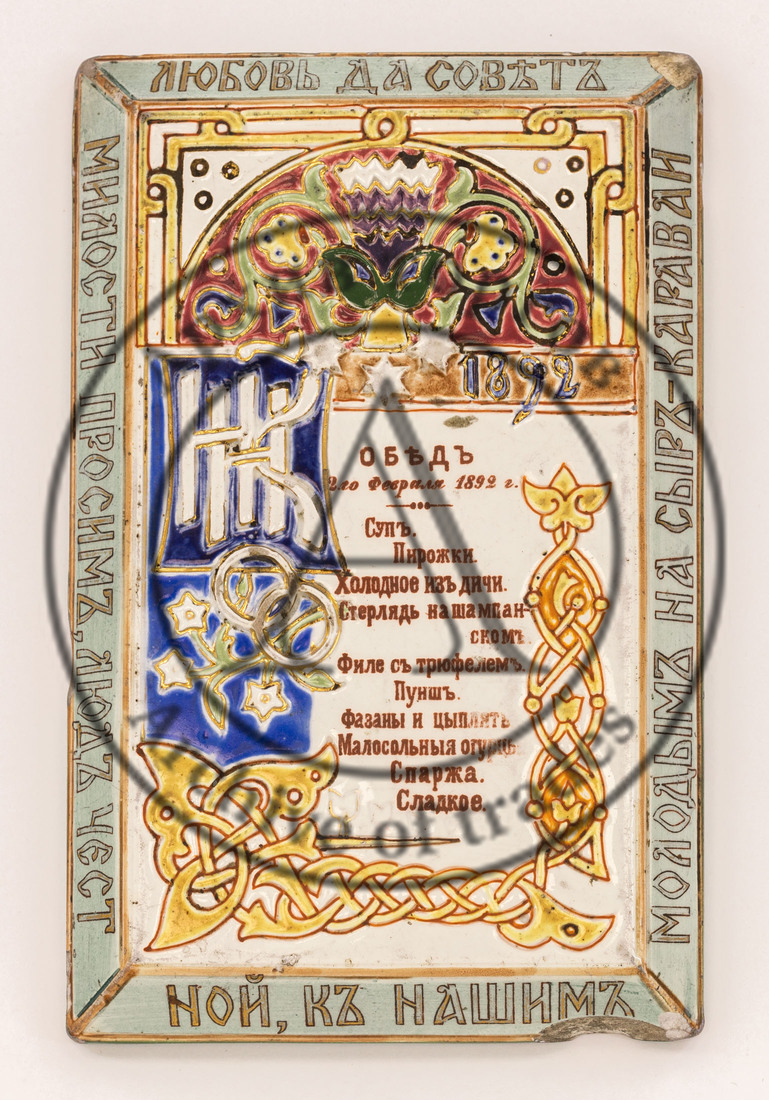 ЛЮБОВЬ ДА СОВѢТЪ
МИЛОСТИ ПРОСИМЪ, ЛЮДЪ ЧЕСТ
НОЙ, КЪ НАШИМЪ
МОЛОДЫМЪ НА СЫРЪ-КАРАВАИ
1892
ОБѢДЪ
2го Февраля 1892 г.
Супъ.
Пирожки.
Холодное изъ дичи.
Стерлядь на шампан-
скомъ.
Филе съ трюфелемъ.
Пуншъ.
Фазаны и цыплята
Малосольныя огурцы
Спаржа.
Сладкое.
A
of